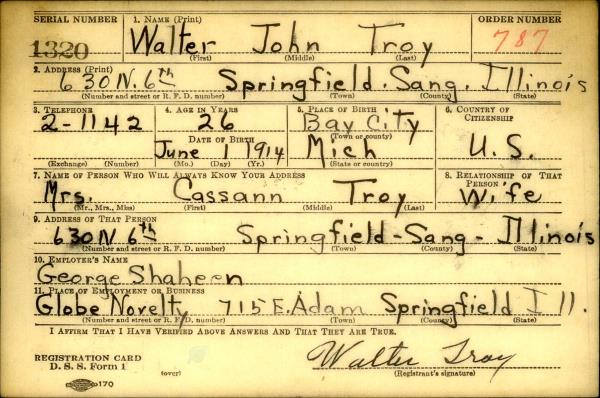 SERIAL NUMBER 1. NAME (Print) ORDER NUMBER
1320 Walter John Troy 787
(First) (Middle) (Last)
2. ADDRESS (Print)
630 N. 6th Springfield. Sang. Illinois
(Number and street or R. F. D. number) (Town) (County) (State)
3. TELEPHONE 4. AGE IN YEARS 5. PLACE OF BIRTH 6. COUNTRY OF CITIZENSHIP
2-1142 26 Bay City
DATE OF BIRTH (Town or county)
June 1 1914 Mich U.S.
(Exchange) (Number) (Mo.) (Day) (Yr.) (State or country)
7. NAME OF PERSON WHO WILL ALWAYS KNOW YOUR ADDRESS 8. RELATIONSHIP OF THAT PERSON
Mrs. Cassann Troy Wife
(Mr., Mrs., Miss) (First) (Middle) (Last)
9. ADDRESS OF THAT PERSON
630 N 6th Springfield - Sang - Illinois
(Number and street or R. F. D. number) (Town) (County) (State)
10. EMPLOYER'S NAME
George Shaheen
11. PLACE OF EMPLOYMENT OR BUSINESS
Globe Novelty 715 E. Adam Springfield Ill.
(Number and street or R. F. D. number) (Town) (County) (State)
I AFFIRM THAT I HAVE VERIFIED ABOVE ANSWERS AND THAT THEY ARE TRUE.
REGISTRATION CARD Walter Troy
D. S. S. Form 1 (over) (Registrant's signature)
170